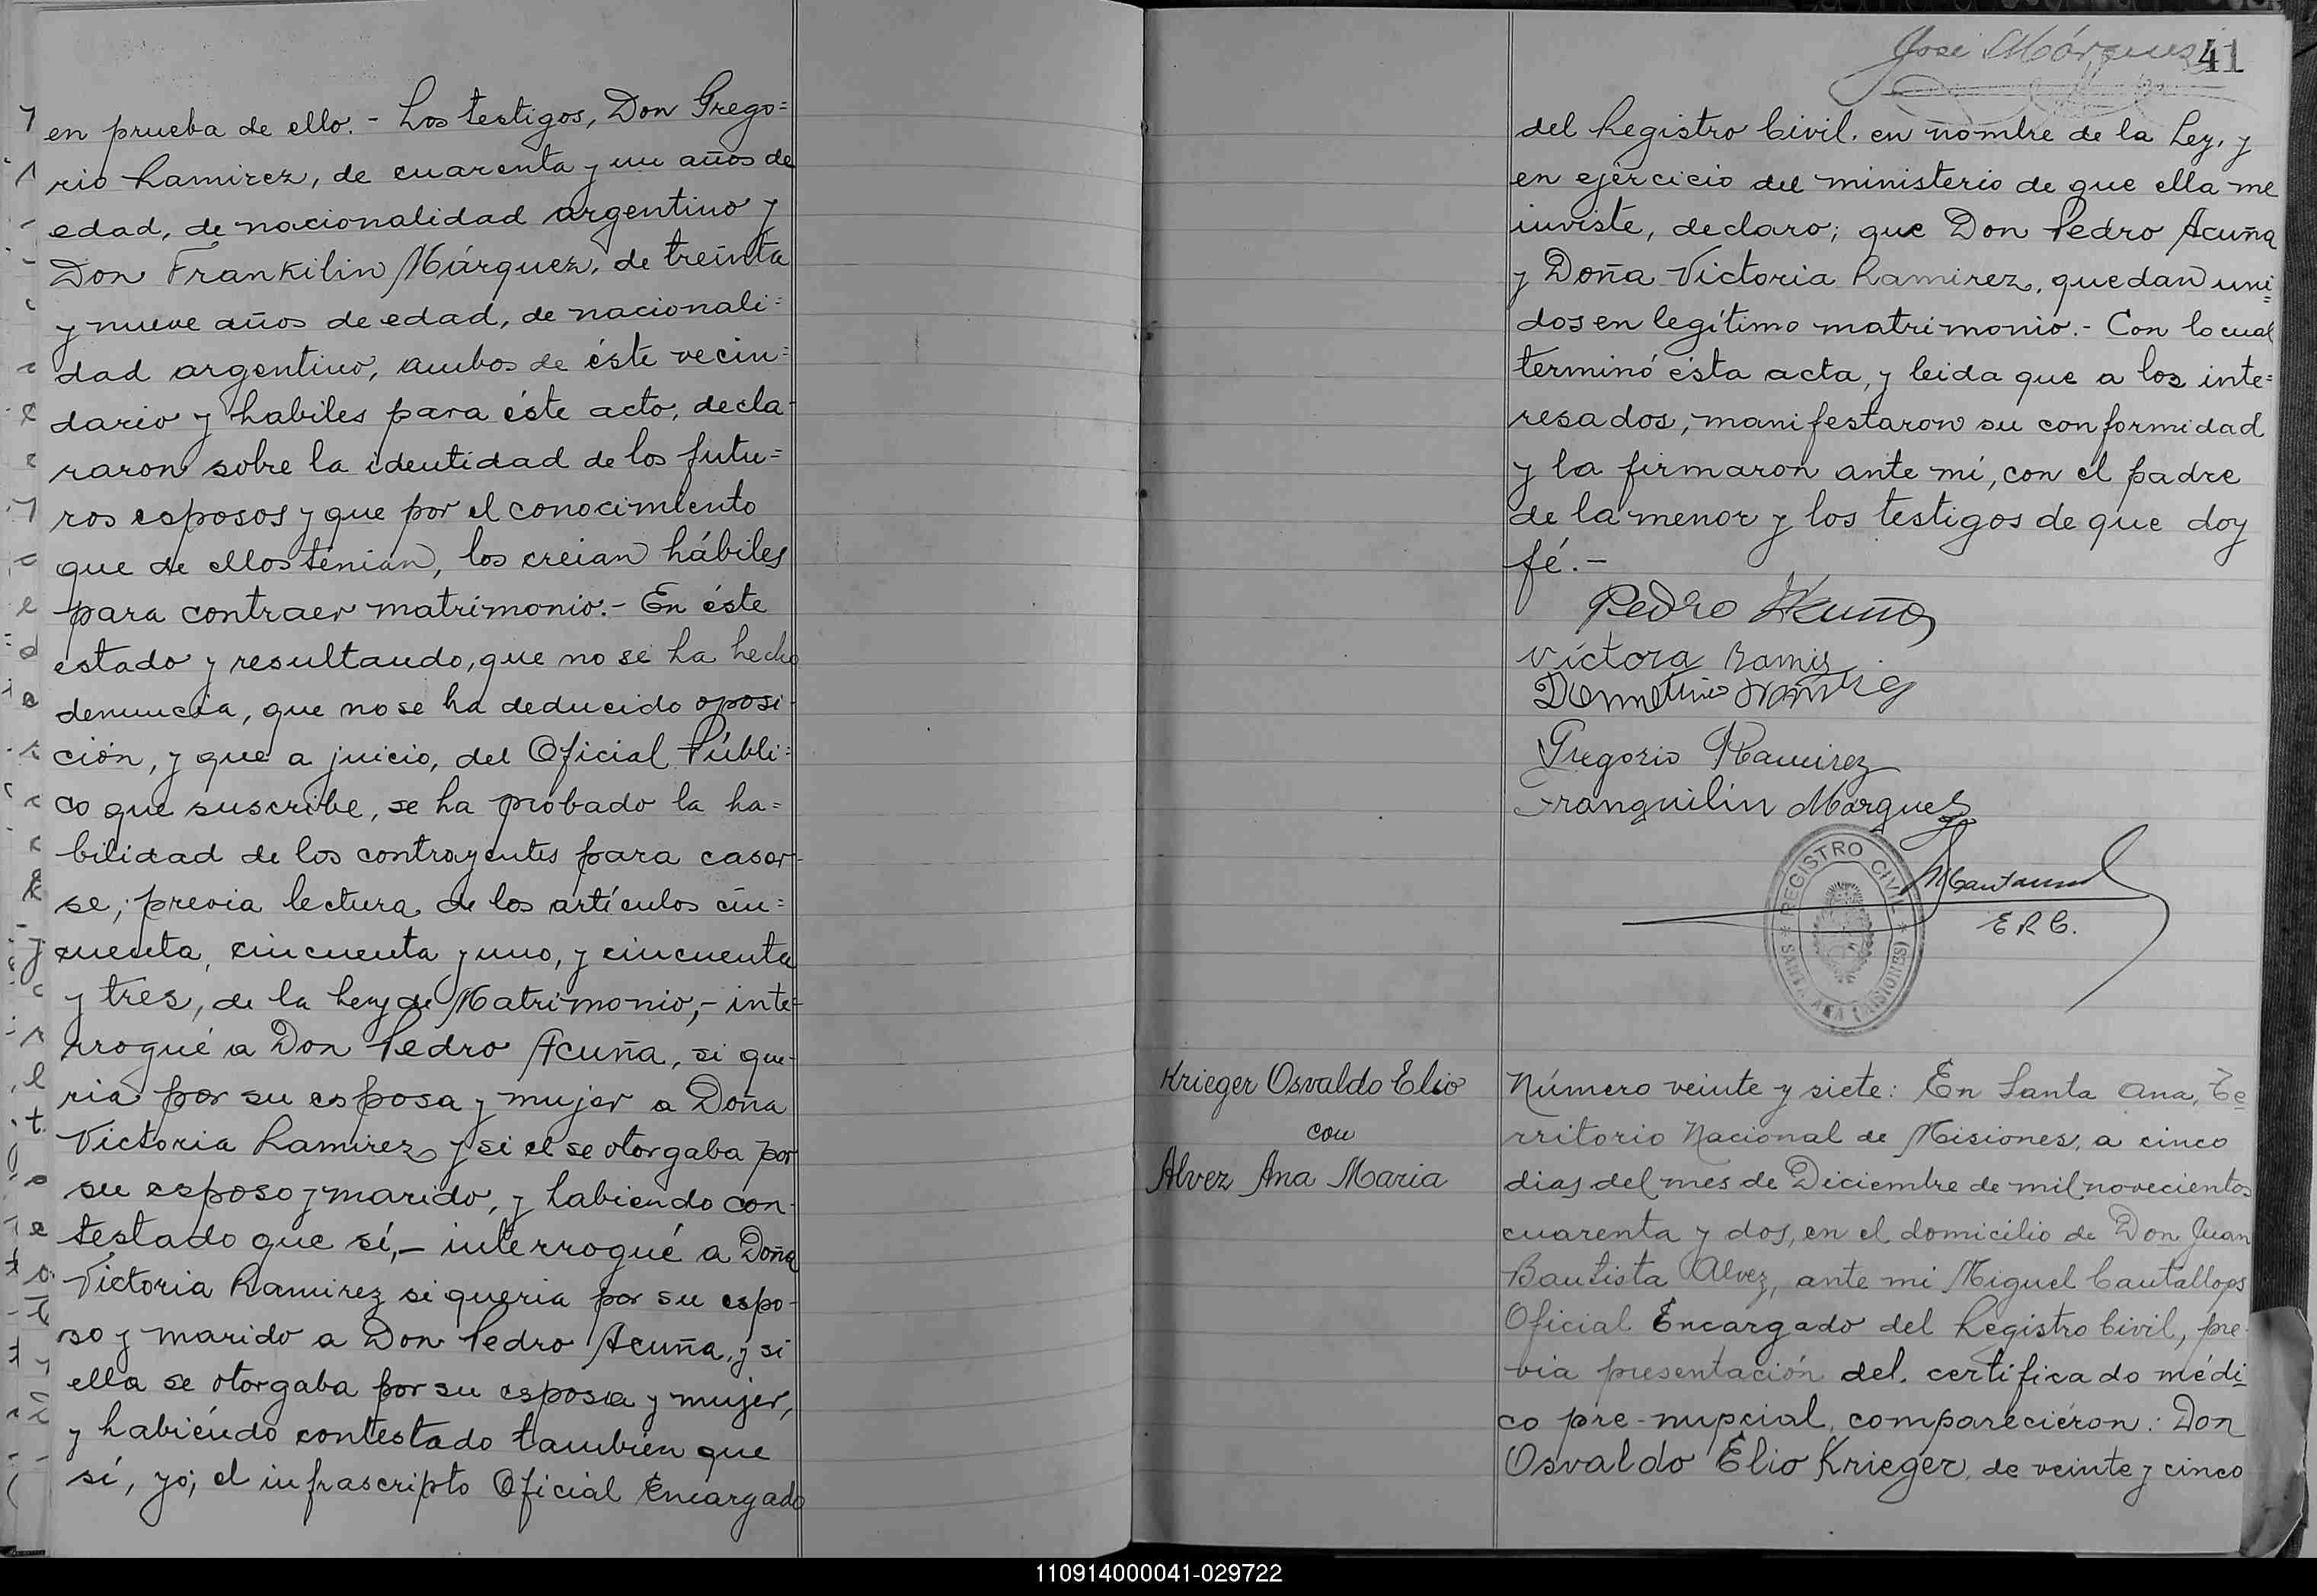 en prueba de ello.- Los testigos, Don Grego=
rio Ramirez, de cuarenta y un años de
edad, de nacionalidad argentino y
Don Frankilin Márquez, de treinta
y nueve años de edad, de nacionali=
dad argentino, ambos de éste vecin=
dario y habiles para éste acto, decla-
raron sobre la identidad de los futu=
ros esposos y que por el conocimiento
que de ellos tenian, los creian hábiles
para contraer matrimonio.- En éste
estado y resultando, que no se ha hecho
denuncia, que no se ha deducido oposi-
ción, y que a juicio, del Oficial Públi=
co que suscribe, se ha probado la ha=
bilidad de los contrayentes para casar-
se; previa lectura de los artículos cin=
cuenta, cincuenta y uno, y cincuenta
y tres, de la Ley de Matrimonio,- inte=
rrogué a Don Pedro Acuña, si que-
ria por su esposa y mujer a Doña
Victoria Ramirez y si el se otorgaba por
su esposo y marido, y habiendo con-
testado que sí,- interrogué a Doña
Victoria Ramirez si queria por su espo-
so y marido a Don Pedro Acuña, y si
ella se otorgaba por su esposa y mujer,
y habiendo contestado tambien que
sí, yo; el infrascripto Oficial Encargado
José Márquez
41
del Registro Civil, en nombre de la Ley, y
en ejercicio del ministerio de que ella me
inviste, declaro; que Don Pedro Acuña
y Doña Victoria Ramirez, quedan uni=
dos en legítimo matrimonio.- Con lo cual
terminó ésta acta, y leida que a los inte=
resados, manifestaron su conformidad
y la firmaron ante mí, con el padre
de la menor y los testigos de que doy
fé.-
Pedro Acuña
Victora Ramis
Gregorio Ramirez
Franquilin Marquez
REGISTRO CIVIL
SANTA ANA (MISIONES)
E R C.
Krieger Osvaldo Elio
con
Alvez Ana Maria
Número veinte y siete: En Santa Ana, Te
rritorio Nacional de Misiones, a cinco
dias del mes de Diciembre de mil novecientos
cuarenta y dos, en el domicilio de Don Juan
Bautista Alvez, ante mi Miguel Cautallops
Oficial Encargado del Registro Civil, pre-
via presentación del certificado médi
co pre-nupcial, comparecieron: Don
Osvaldo Elio Krieger, de veinte y cinco
110914000041-029722